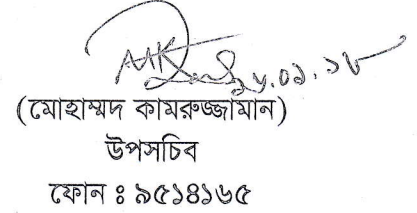 (মোহাম্মদ কামরুজ্জামান)
উপসচিব
ফোন ঃ ৯৫১৪১৬৫